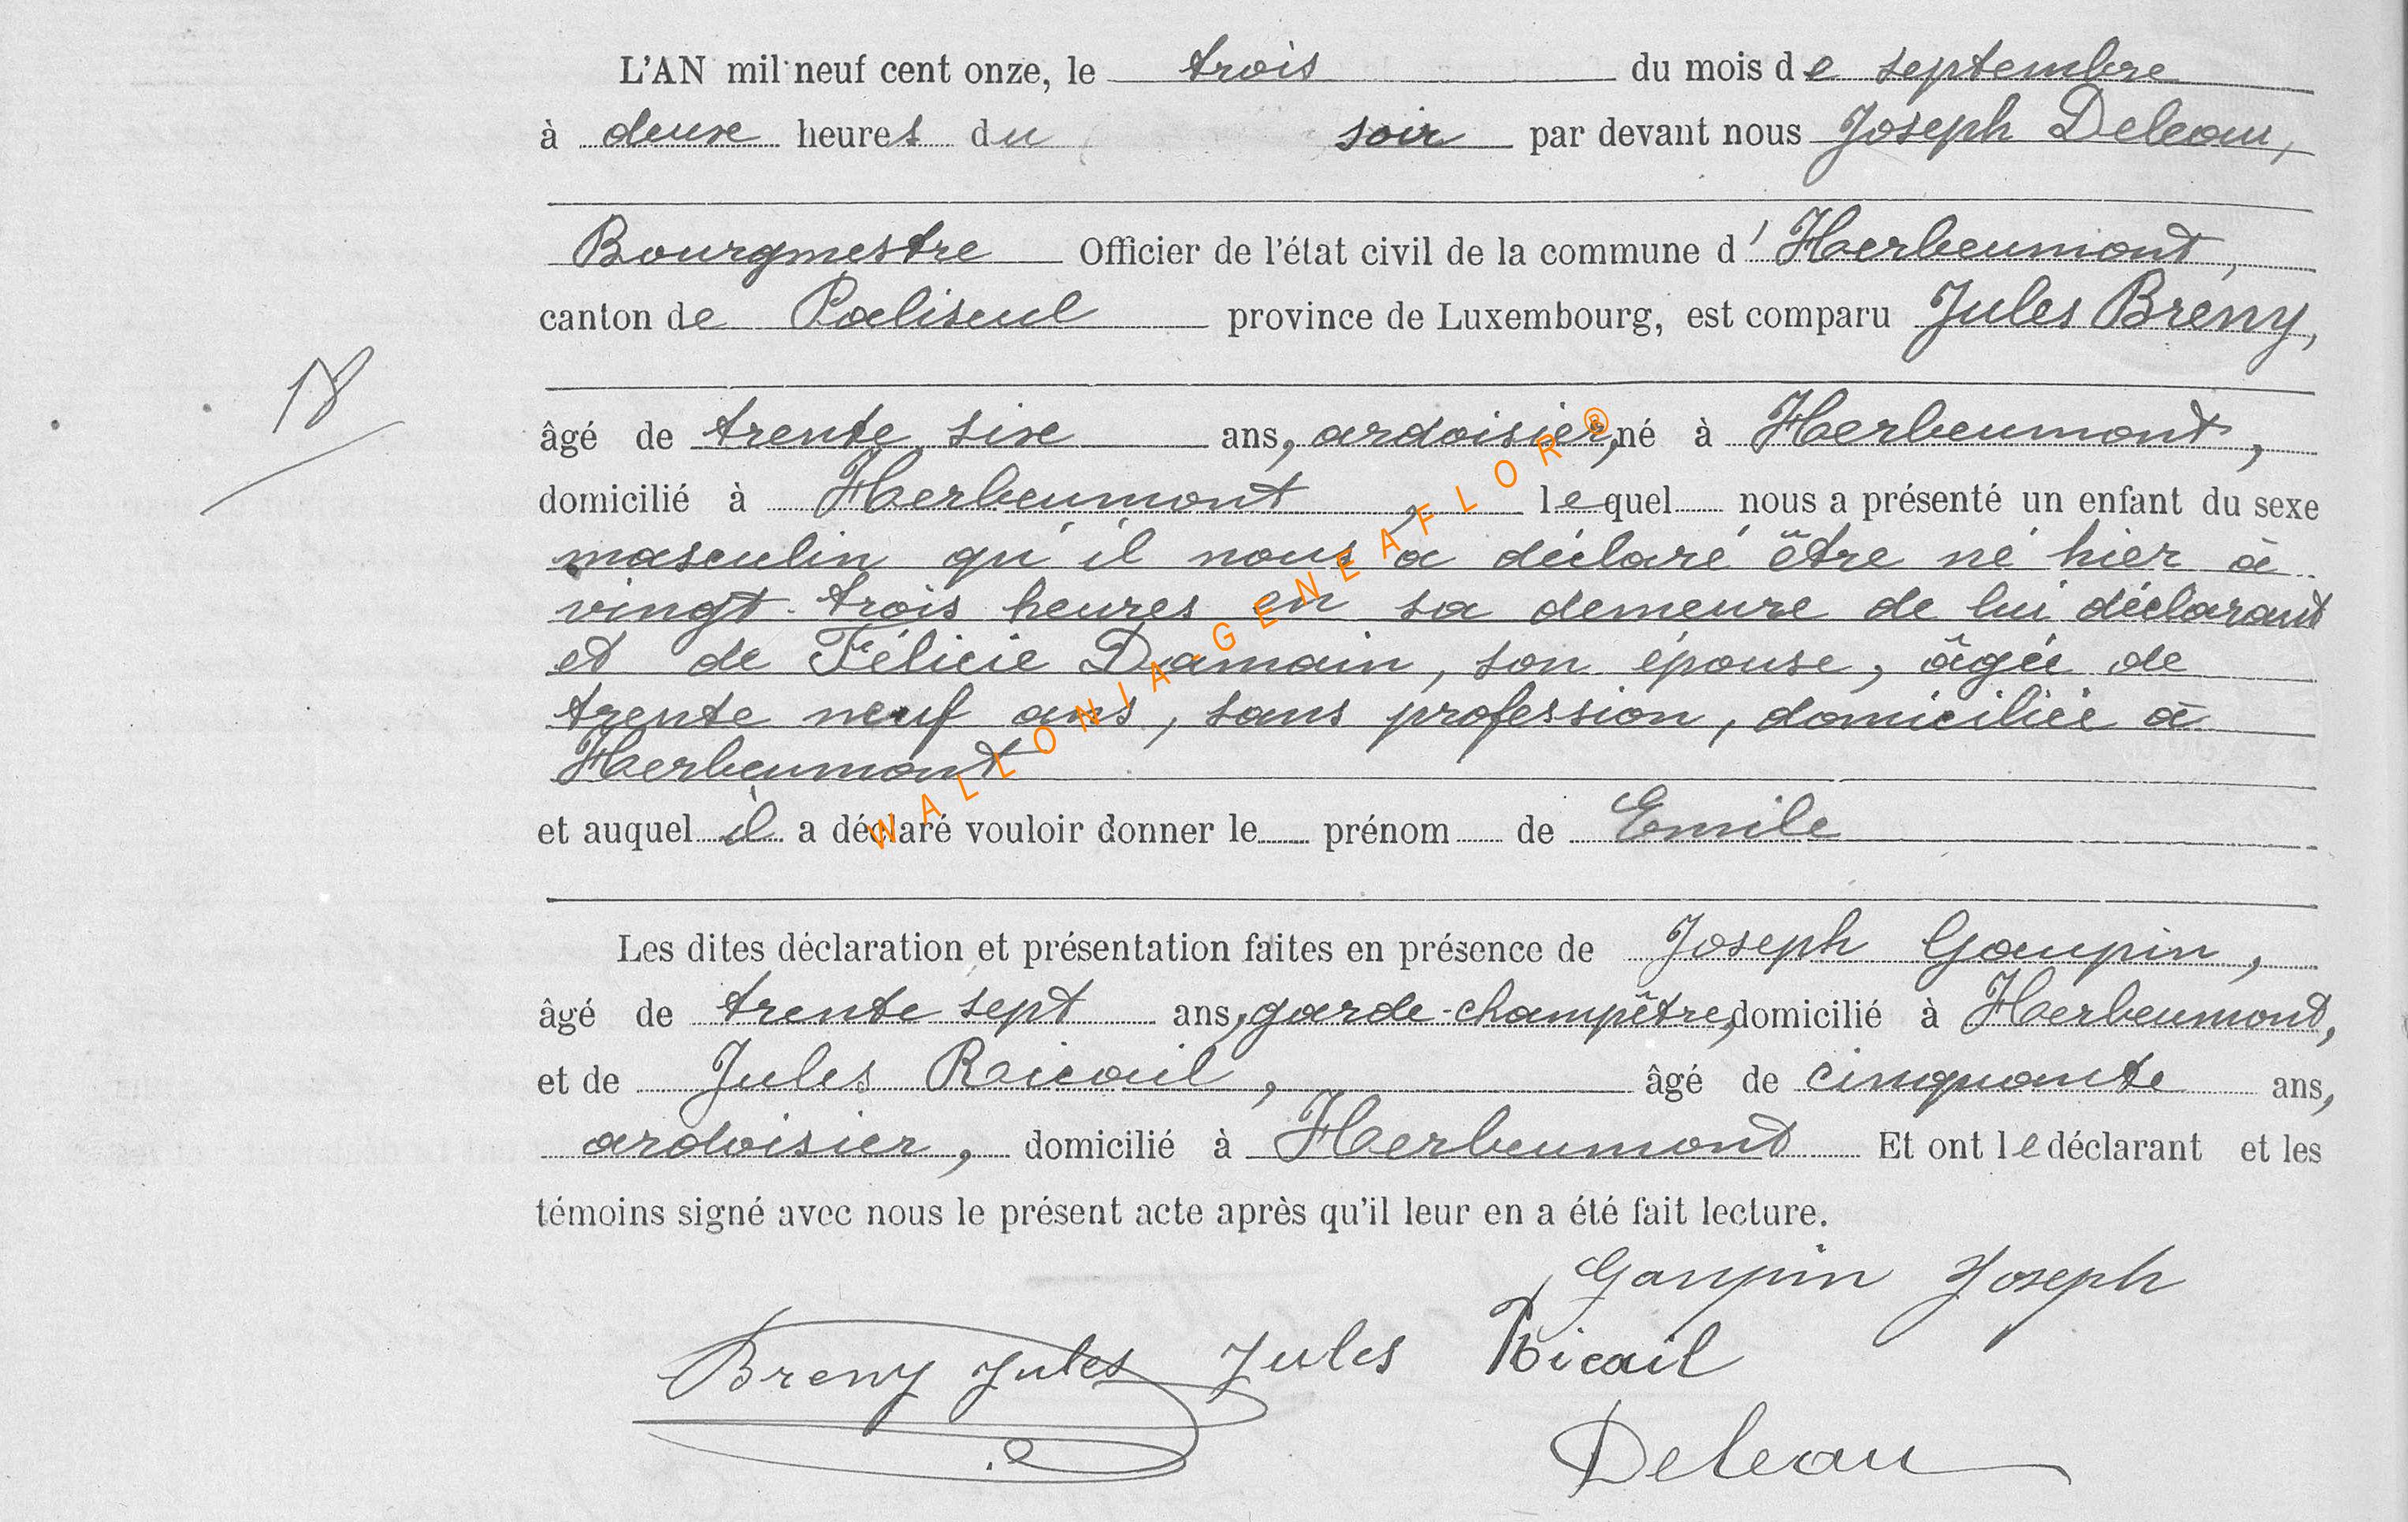 L'AN mil neuf cent onze, le trois du mois de septembre
à deux heures du soir par devant nous Joseph Deleau,
Bourgmestre Officier de l'état civil de la commune d'Herbeumont,
canton de Paliseul province de Luxembourg, est comparu Jules Breny,
18
âgé de trente six ans, ardoisier, né à Herbeumont,
domicilié à Herbeumont, lequel nous a présenté un enfant du sexe
masculin qu'il nous a déclaré être né hier à
vingt-trois heures en sa demeure de lui déclarant
et de Félicie Damain, son épouse, âgée de
trente neuf ans, sans profession, domiciliée à
Herbeumont
et auquel il a déclaré vouloir donner le prénom de Emile
Les dites déclaration et présentation faites en présence de Joseph Gaupin,
âgé de trente sept ans, garde-champêtre, domicilié à Herbeumont,
et de Jules Ricail, âgé de cinquante ans,
ardoisier, domicilié à Herbeumont Et ont le déclarant et les
témoins signé avec nous le présent acte après qu'il leur en a été fait lecture.
Gaupin Joseph
Breny Jules Jules Ricail
Deleau
WALLONIA-GENEAFLOR®